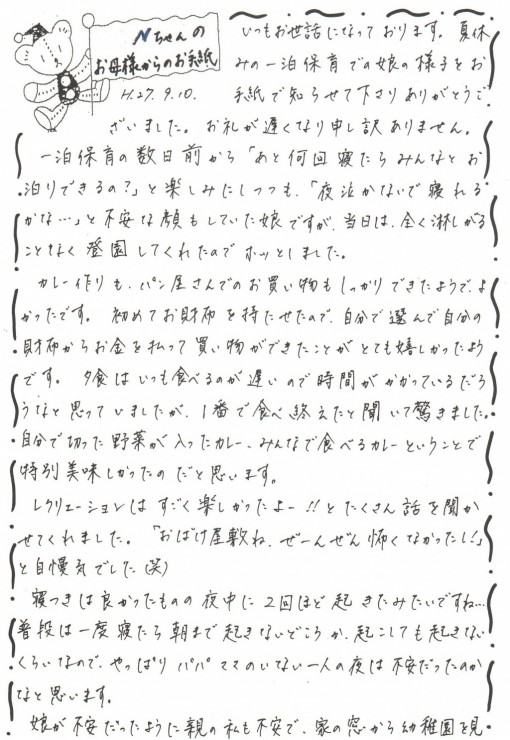 Nちゃんの
お母様からのお手紙
H.27.9.10.
いつもお世話になっております。夏休
みの一泊保育での娘の様子をお
手紙で知らせて下さりありがとうご
ざいました。お礼が遅くなり申し訳ありません。
一泊保育の数日前から「あと何回寝たらみんなとお
泊りできるの?」と楽しみにしつつも、「夜泣かないで寝れる
かな…」と不安な顔もしていた娘ですが、当日は、全く淋しがる
ことなく登園してくれたのでホッとしました。
カレー作りも、パン屋さんでのお買い物もしっかりできたようで、よ
かったです。初めてお財布を持たせたので、自分で選んで自分の
財布からお金を払って買い物ができたことがとても嬉しかったよう
です。夕食はいつも食べるのが遅いので時間がかかっているだろ
うなと思っていましたが、1番で食べ終えたと聞いて驚きました。
自分で切った野菜が入ったカレー、みんなで食べるカレーということで
特別美味しかったのだと思います。
レクリエーションはすごく楽しかったよー!!とたくさん話を聞か
せてくれました。「おばけ屋敷ね、ぜーんぜん怖くなかったし!」
と自慢気でした(笑)
寝つきは良かったものの夜中に2回ほど起きたみたいですね…
普段は一度寝たら朝まで起きないどころか、起こしても起きない
くらいなので、やっぱりパパママのいない一人の夜は不安だったのか
なと思います。
娘が不安だったように親の私も不安で、家の窓から幼稚園を見